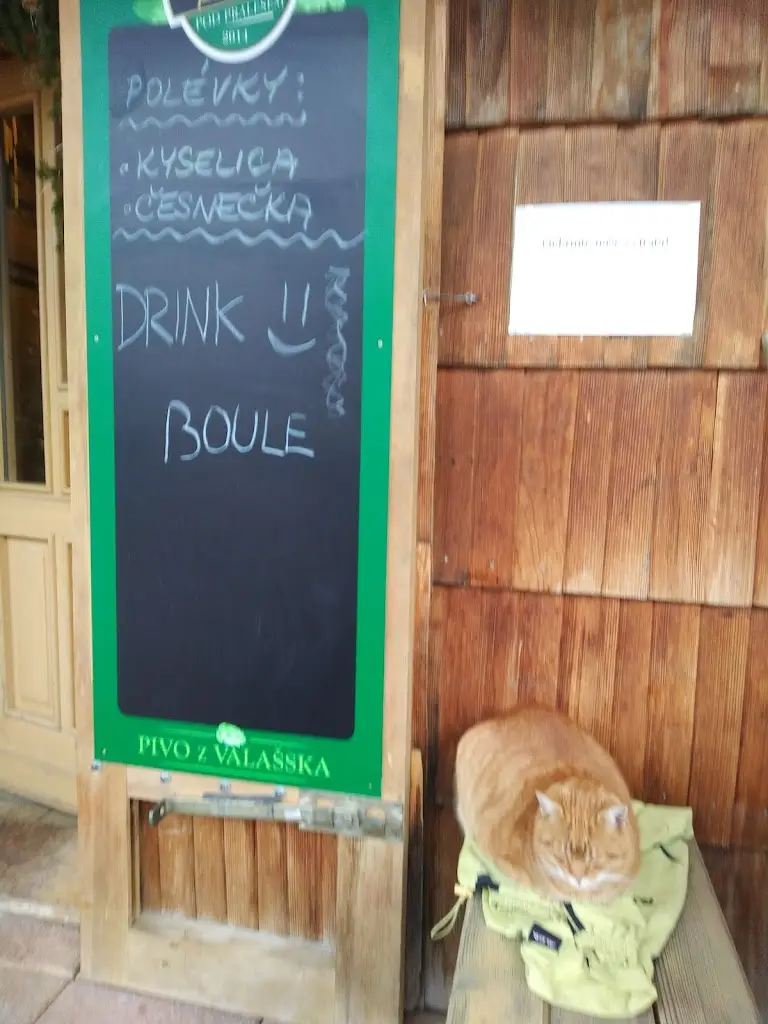 2014
POLÉVKY:
KYSELICA
ČESNEČKA
DRINK
BOULE
PIVO z VALAŠSKA